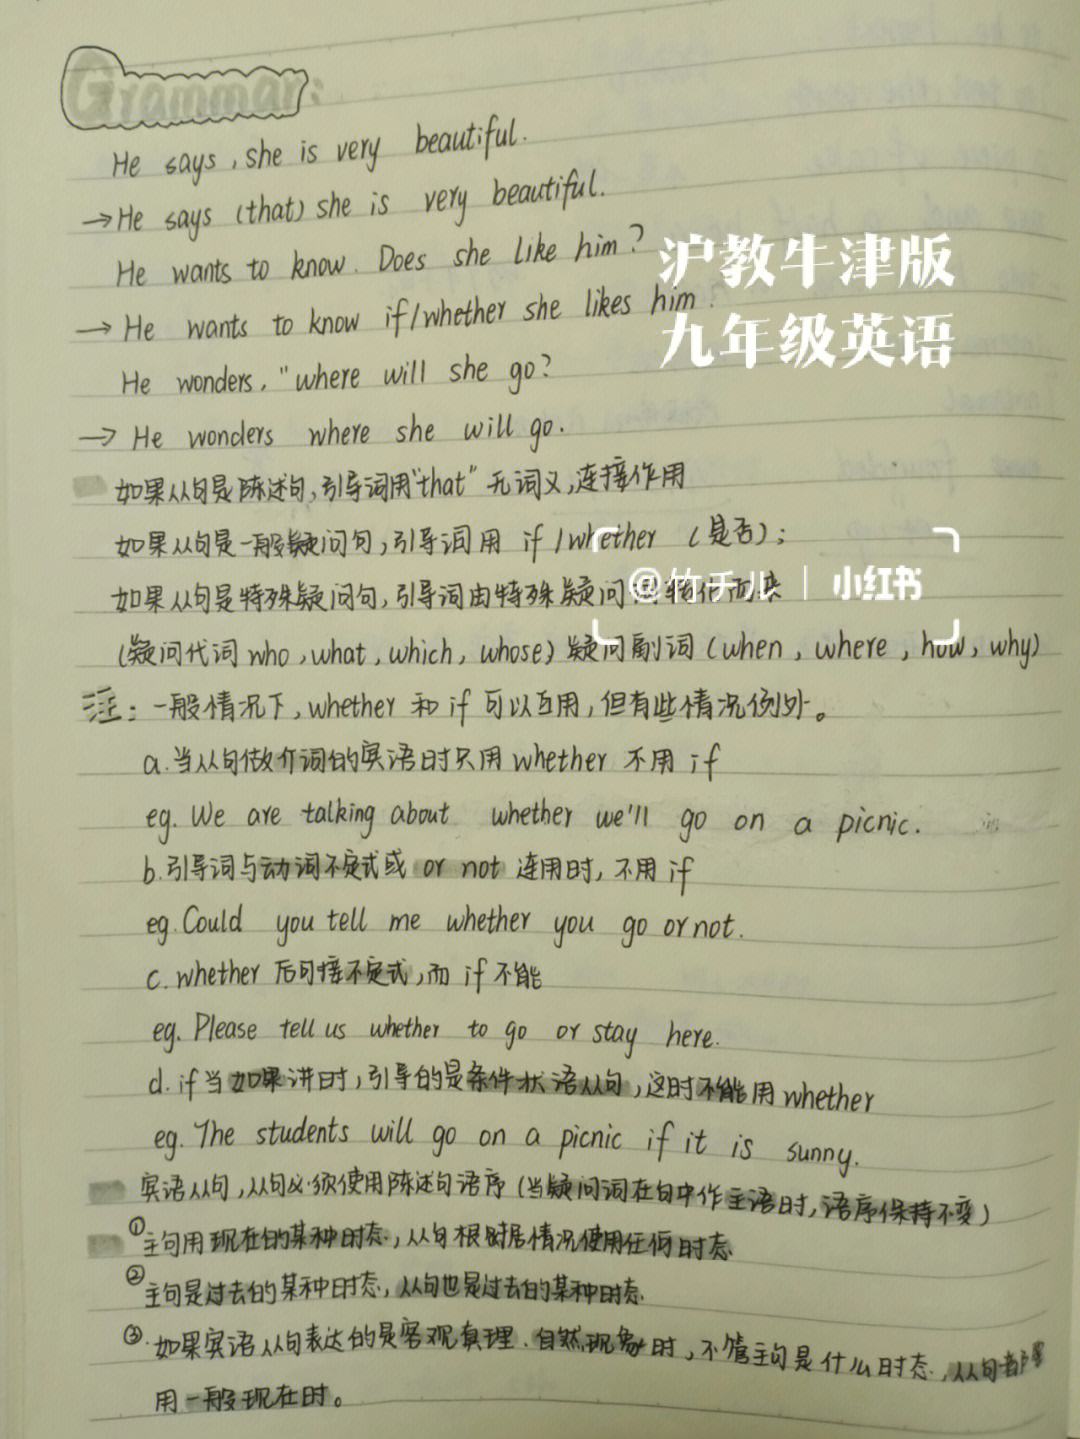 Grammar:
He says, she is very beautiful.
→He says (that) she is very beautiful.
He wants to know. Does she like him?
→ He wants to know if/whether she likes him.
沪教牛津版
九年级英语
He wonders, "where will she go?
→ He wonders where she will go.
如果从句是陈述句,引导词用"that" 无词义,连接作用
如果从句是一般疑问句,引导词用 if/whether (是否);
如果从句是特殊疑问句,引导词由特殊疑问词转化而来
@竹子儿 | 小红书
(疑问代词 who, what, which, whose) 疑问副词 (when, where, how, why)
注: 一般情况下, whether 和 if 可以互用, 但有些情况例外。
a.当从句做介词的宾语时只用 whether 不用 if
eg. We are talking about whether we'll go on a picnic.
b.引导词与动词不定式或 or not 连用时, 不用 if
eg. Could you tell me whether you go or not.
c. whether 后可接不定式,而 if 不能
eg. Please tell us whether to go or stay here.
d. if 当如果讲时, 引导的是条件状语从句,这时不能用 whether
eg. The students will go on a picnic if it is sunny.
宾语从句,从句必须使用陈述句语序 (当疑问词在句中作主语时, 语序保持不变)
①主句用现在的某种时态,从句根据情况使用任何时态
②主句是过去的某种时态, 从句也是过去的某种时态
③.如果宾语从句表达的是客观真理、自然现象时, 不管主句是什么时态, 从句都
用一般现在时。